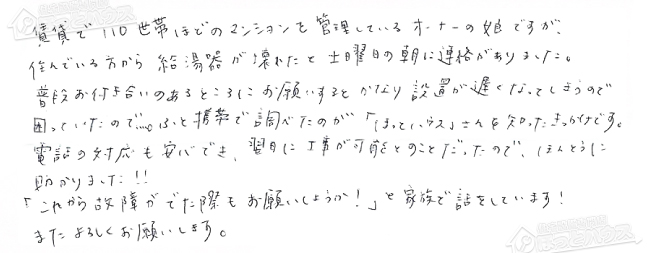 賃貸で110世帯ほどのマンションを管理しているオーナーの娘ですが、
住んでいる方から給湯器が壊れたと土曜日の朝に連絡がありました。
普段お付き合いのあるところにお願いするとかなり設置が遅くなってしまうので
困っていたので…。ふと携帯で調べたのが「ほっとハウス」さんを知ったきっかけです。
電話の対応も安心でき、翌日に工事が可能とのことだったので、ほんとうに
助かりました!!
「これから故障がでた際もお願いしようか!」と家族で話をしています!
またよろしくお願いします。